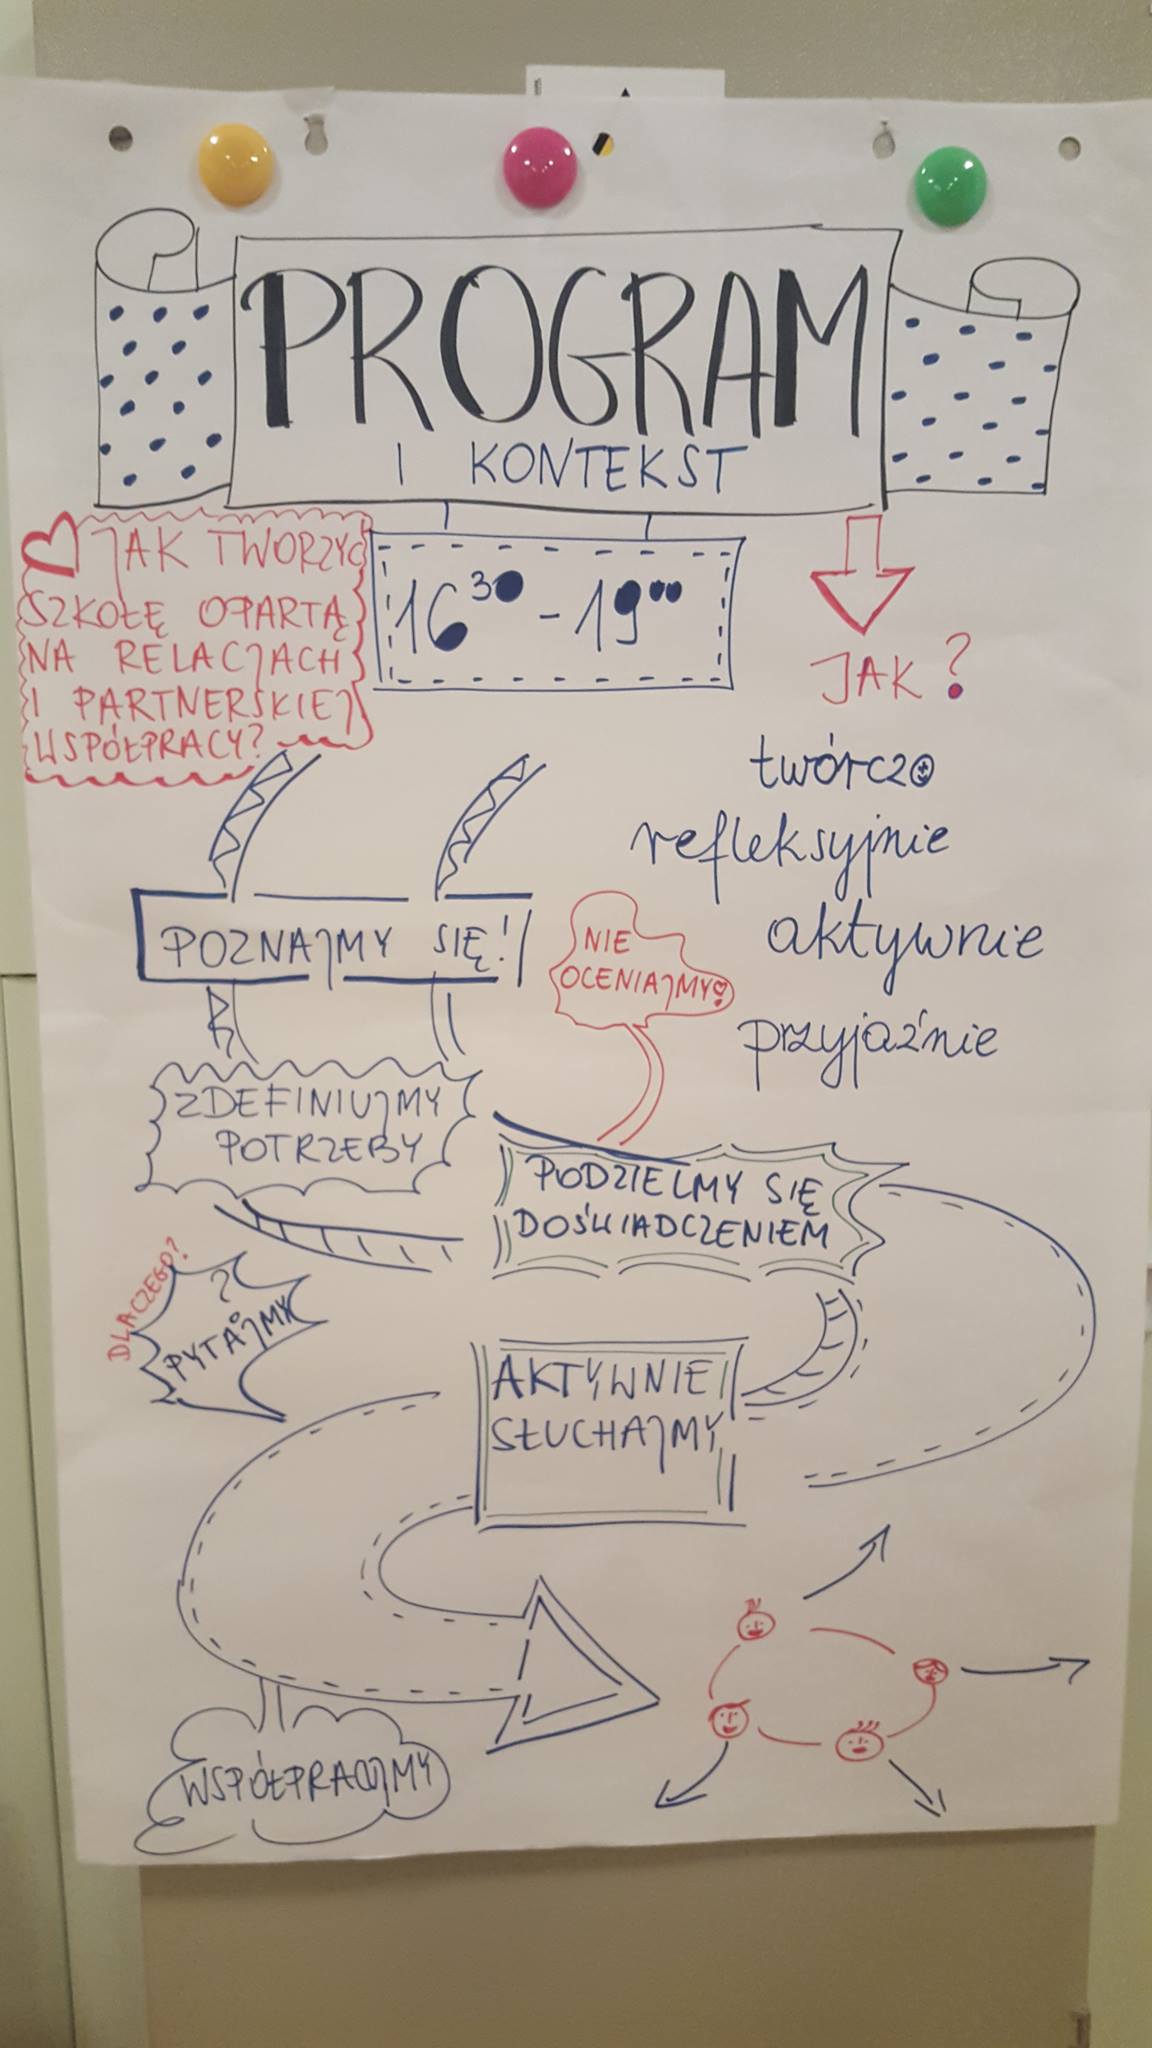 PROGRAM
I KONTEKST
JAK TWORZYĆ
SZKOŁĘ OPARTĄ
NA RELACJACH
I PARTNERSKIEJ
WSPÓŁPRACY?
16³⁰ - 19⁰⁰
JAK?
twórczo
refleksyjnie
aktywnie
przyjaźnie
POZNAJMY SIĘ!
NIE
OCENIAJMY!
ZDEFINIUJMY
POTRZEBY
PODZIELMY SIĘ
DOŚWIADCZENIEM
DLACZEGO?
?
PYTAJMY
AKTYWNIE
SŁUCHAJMY
WSPÓŁPRACUJMY